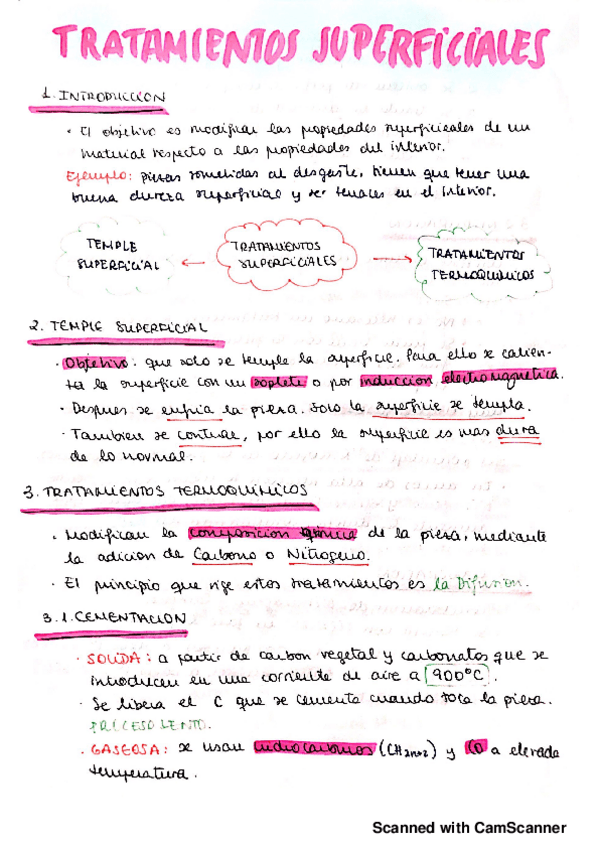 TRATAMIENTOS SUPERFICIALES
1. INTRODUCCION
· El objetivo es modificar las propiedades superficieales de un
material respecto a las propiedades del interior.
Ejemplo: piezas sometidas al desgaste, tienen que tener una
buena dureza superficial y ser tenaces en el interior.
TEMPLE
SUPERFICIAL
←
TRATAMIENTOS
SUPERFICIALES
→
TRATAMIENTOS
TERMOQUIMICOS
2. TEMPLE SUPERFICIAL
· Objetivo: que solo se temple la superficie. Para ello se calien-
ta la superficie con un soplete o por induccion electromagnetica.
· Despues se enfria la pieza. Solo la superficie se templa.
· Tambien se contrae, por ello la superficie es mas dura
de lo normal.
3. TRATAMIENTOS TERMOQUIMICOS
· Modifican la composicion quimica de la pieza, mediante
la adicion de Carbono o Nitrogeno.
· El principio que rige estos tratamientos es la Difusion.
3.1. CEMENTACION
· SOLIDA: a partir de carbon vegetal y carbonatos que se
introducen en una corriente de aire a 900°C.
· Se libera el C que se cementa cuando toca la pieza.
PROCESO LENTO.
· GASEOSA: se usan hidrocarburos (CH2n+2) y CO a elevada
temperatura.
Scanned with CamScanner